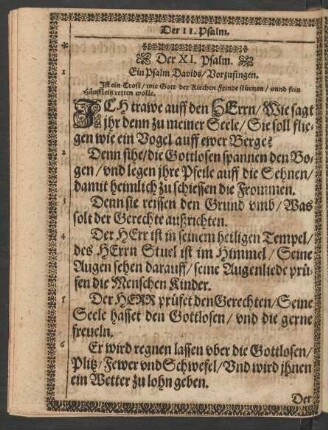 Der 11. Psalm.
Der XI. Psalm.
1 Ein Psalm Davids/Vorzusingen.
Ist ein Trost/wie Gott der Kirchen Feinde stürtzen/vnnd sein
Häufflein retten wolle.
ICH trawe auff den HErrn/Wie sagt
jhr denn zu meiner Seele/Sie soll flie-
gen wie ein Vogel auff ewer Berge?
2 Denn sihe/die Gottlosen spannen den Bo-
gen/vnd legen jhre Pfeile auff die Sehnen/
damit heimlich zu schiessen die Frommen.
3 Denn sie reissen den Grund vmb/Was
solt der Gerechte außrichten.
4 Der HErr ist in seinem heiligen Tempel/
des HErrn Stuel ist im Himmel/Seine
Augen sehen darauff/seine Augenliede prü-
fen die Menschen Kinder.
5 Der HERR prüfet den Gerechten/Seine
Seele hasset den Gottlosen/vnd die gerne
freueln.
6 Er wird regnen lassen vber die Gottlosen/
Plitz/Fewer vnd Schwefel/Vnd wird jhnen
ein Wetter zu lohn geben.
Der